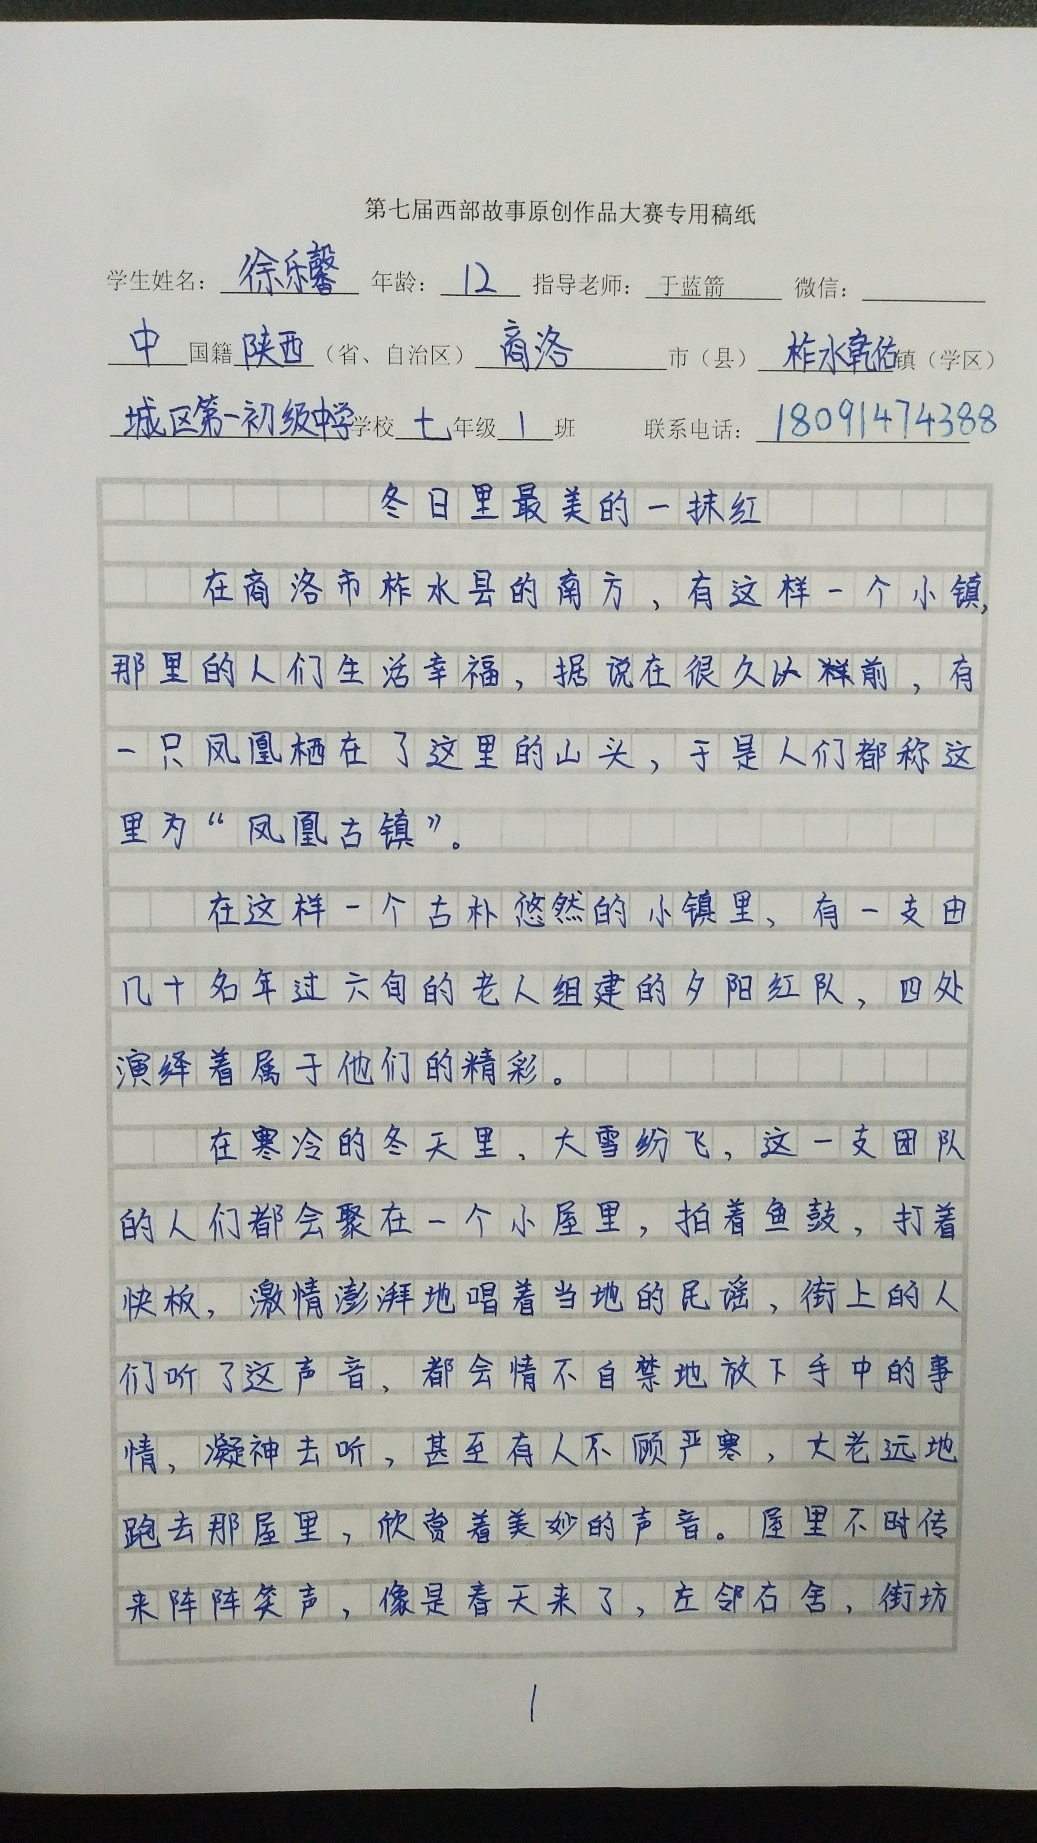 第七届西部故事原创作品大赛专用稿纸
学生姓名：徐乐馨 年龄：12 指导老师：于蓝箭 微信：
中国籍陕西（省、自治区）商洛市（县）柞水乾佑镇（学区）
城区第一初级中学学校七年级1班 联系电话：18091474388
冬日里最美的一抹红
在商洛市柞水县的南方，有这样一个小镇，
那里的人们生活幸福，据说在很久以前，有
一只凤凰栖在了这里的山头，于是人们都称这
里为“凤凰古镇”。
在这样一个古朴悠然的小镇里、有一支由
几十名年过六旬的老人组建的夕阳红队，四处
演绎着属于他们的精彩。
在寒冷的冬天里、大雪纷飞，这一支团队
的人们都会聚在一个小屋里，拍着鱼鼓，打着
快板，激情澎湃地唱着当地的民谣，街上的人
们听了这声音，都会情不自禁地放下手中的事
情，凝神去听，甚至有人不顾严寒，大老远地
跑去那屋里，欣赏着美妙的声音。屋里不时传
来阵阵笑声，像是春天来了，左邻右舍，街坊
1